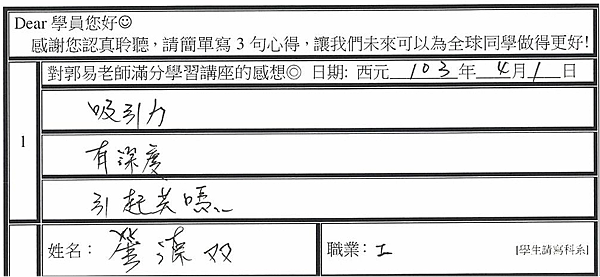 Dear 學員您好☺
感謝您認真聆聽，請簡單寫 3 句心得，讓我們未來可以為全球同學做得更好!
對郭易老師滿分學習講座的感想◎ 日期: 西元 103 年 4 月 1 日
1
吸引力
有深度
引起共鳴
姓名：
職業：工 [學生請寫科系]